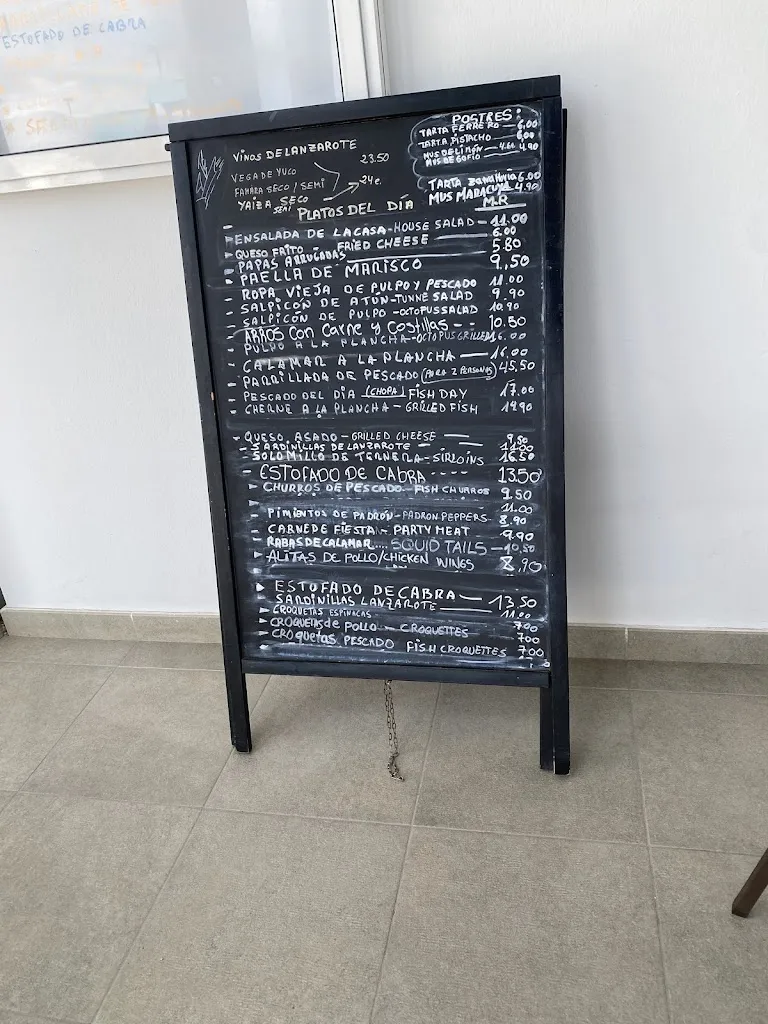 ESTOFADO DE CABRA
VINOS DE LANZAROTE
23.50
VEGA DE YUCO
FAMARA SECO / SEMI
24€
YAIZA SECO
SEMI
POSTRES:
TARTA FERRERO — 6,00
TARTA PISTACHO 6,00
MUS DE LIMÓN — 4.90
MUS DE GOFIO
TARTA Zanahoria 6.00
MUS MARACUYA 4.90
PLATOS DEL DÍA
M.R
ENSALADA DE LA CASA - HOUSE SALAD - 11.00
QUESO FRITO - FRIED CHEESE 6.00
PAPAS ARRUGADAS 5.80
PAELLA DE MARISCO 9,50
ROPA VIEJA DE PULPO Y PESCADO 11.00
SALPICÓN DE ATÚN - TUNNE SALAD 9.90
SALPICÓN DE PULPO - OCTOPUS SALAD 10.90
ARROS CON Carne y Costillas - - 10.50
PULPO A LA PLANCHA - OCTOPUS GRILLED 16.00
CALAMAR A LA PLANCHA — 16.00
PARRILLADA DE PESCADO (PARA 2 PERSONAS) 45,50
PESCADO DEL DIA (CHOPA) FISH DAY 17.00
CHERNE A LA PLANCHA - GRILLED FISH 19.90
QUESO ASADO - GRILLED CHEESE — 9,50
SARDINILLAS DE LANZAROTE — 11.00
SOLOMILLO DE TERNERA - SIRLOINS 16.50
ESTOFADO DE CABRA - - - - 13.50
CHURROS DE PESCADO - FISH CHURROS 9.50
11.00
PIMIENTOS DE PADRÓN - PADRON PEPPERS - 8.90
CARNE DE FIESTA - PARTY MEAT 9.90
RABAS DE CALAMAR .... SQUID TAILS — 10,50
ALITAS DE POLLO / CHICKEN WINGS 8,90
ESTOFADO DE CABRA — 13,50
SARDINILLAS LANZAROTE — 11.00
CROQUETAS ESPINACAS 7.00
CROQUETAS DE POLLO - CROQUETTES 7.00
CROQUETAS PESCADO FISH CROQUETTES 7.00